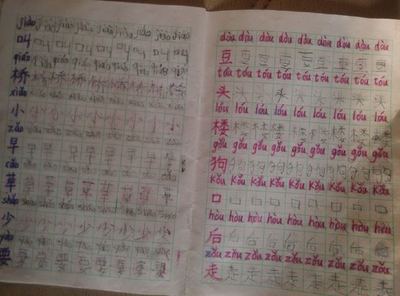 jiào jiào jiào jiào jiào jiào jiào jiào
叫 叫 叫 叫 叫 叫 叫 叫
qiáo qiáo qiáo qiáo qiáo qiáo qiáo qiáo
桥 桥 桥 桥 桥 桥 桥 桥
xiǎo
小 小 小 小 小 小 小 小
zǎo
早 早 早 早 早 早 早 早
cǎo
草 草 草 草 草 草 草 草
shǎo
少 少 少 少 少 少 少 少
yào
要 要 要 要 要 要 要 要
dòu dòu dòu dòu dòu dòu dòu dòu
豆 豆 豆 豆 豆 豆 豆 豆
tóu tóu tóu tóu tóu tóu tóu tóu
头 头 头 头
lóu lóu lóu lóu lóu lóu lóu lóu
楼 楼 楼 楼 楼 楼 楼 楼
gǒu gǒu gǒu gǒu gǒu gǒu gǒu gǒu
狗 狗 狗 狗 狗 狗 狗 狗
kǒu kǒu kǒu kǒu kǒu kǒu kǒu kǒu
口 口 口 口 口 口 口 口
hòu hòu hòu hòu hòu hòu hòu hòu
后 后 后 后 后 后 后 后
zǒu zǒu zǒu zǒu zǒu zǒu zǒu zǒu
走 走 走 走 走 走 走 走